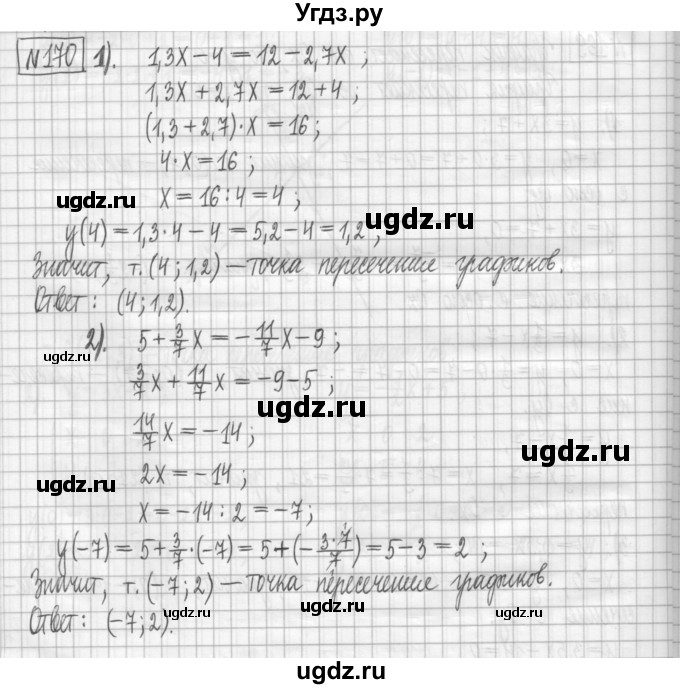 Угдз.ру
№170 1). 1,3x − 4 = 12 − 2,7x ;
1,3x + 2,7x = 12 + 4 ;
(1,3 + 2,7)·x = 16 ;
4·x = 16 ;
x = 16 : 4 = 4 ;
y(4) = 1,3·4 − 4 = 5,2 − 4 = 1,2 ;
Значит, т. (4; 1,2) — точка пересечения графиков.
Ответ: (4; 1,2).
2). 5 + 3/7 x = − 11/7 x − 9 ;
3/7 x + 11/7 x = −9 − 5 ;
14/7 x = −14 ;
2x = −14 ;
x = −14 : 2 = −7 ;
y(−7) = 5 + 3/7 · (−7) = 5 + (− 3·7/7) = 5 − 3 = 2 ;
Значит, т. (−7; 2) — точка пересечения графиков.
Ответ: (−7; 2).
ugdz.ru
ugdz.ru
ugdz.ru
ugdz.ru
ugdz.ru
ugdz.ru
ugdz.ru
ugdz.ru
ugdz.ru
ugdz.ru